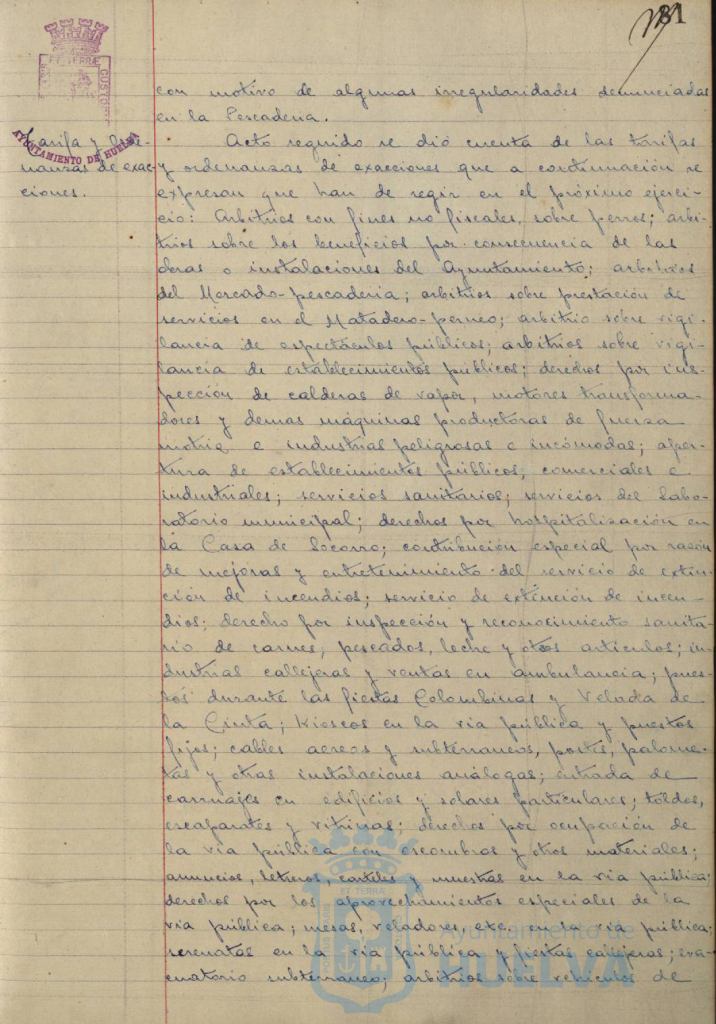 81
con motivo de algunas irregularidades denunciadas
en la Pescaderia.
Tarifa y Orde-
nanzas de exac-
ciones.
AYUNTAMIENTO DE HUELVA
Acto seguido se dió cuenta de las tarifas
y ordenanzas de exacciones que a continuación se
expresan que han de regir en el próximo ejerci-
cio: Arbitrios con fines no fiscales, sobre perros; arbi-
trios sobre los beneficios por consecuencia de las
obras o instalaciones del Ayuntamiento; arbitrios
del Mercado-pescaderia; arbitrios sobre prestación de
servicios en el Matadero-perneo; arbitrio sobre vigi-
lancia de espectáculos públicos; arbitrios sobre vigi-
lancia de establecimientos públicos; derechos por ins-
pección de calderas de vapor, motores transforma-
dores y demas máquinas productoras de fuerza
motriz e industrias peligrosas e incómodas; aper-
tura de establecimientos públicos, comerciales e
industriales; servicios sanitarios; servicios del Labo-
ratorio municipal; derechos por hospitalización en
la Casa de Socorro; contribución especial por razón
de mejoras y entretenimiento del servicio de extin-
ción de incendios; servicio de extinción de incen-
dios; derecho por inspección y reconocimiento sanita-
rio de carnes, pescados, leche y otros articulos; in-
dustrias callejeras y ventas en ambulancia; pues-
tos durante las fiestas Colombinas y Velada de
la Cinta; Kioscos en la via pública y puestos
fijos; cables aereos y subterraneos, postes, palome-
tas y otras instalaciones análogas; entrada de
carruajes en edificios y solares particulares; toldos,
escaparates y vitrinas; derechos por ocupación de
la via pública con escombros y otros materiales;
anuncios, letreros, carteles y muestras en la via pública;
derechos por los aprovechamientos especiales de la
via pública; mesas, veladores, etc. en la via pública;
serenatas en la via pública y fiestas callejeras; eva-
cuatorio subterraneo; arbitrios sobre vehiculos de
Ayuntamiento de
HUELVA